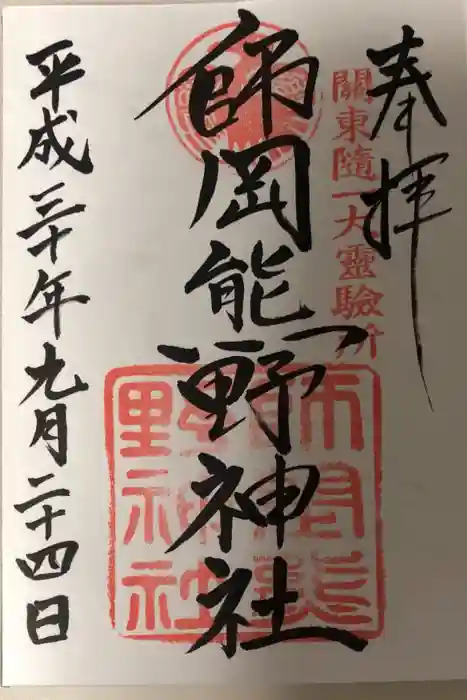 奉拝
關東隨一大靈驗所
師岡熊野神社
師岡熊
野神社
平成三十年九月二十四日